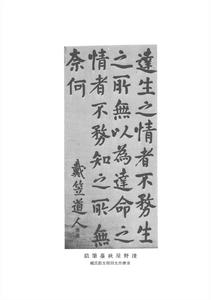 達生之情者不務生
之所無以為達命之
情者不務知之所無
奈何
戴笠道人
野屋秋臺筆蹟